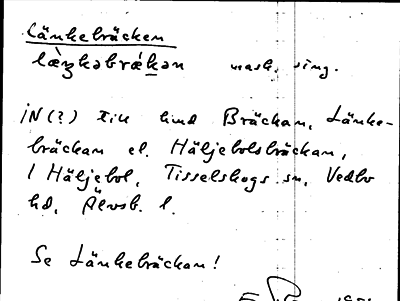 Länkebräcken
læ̀ŋkəbrákən mask. sing.
iN(?) till hmd Bräckan, Länke-
bräckan el. Häljebolsbräckan,
i Häljebol, Tisselskogs sn, Vedbo
hd, Älvsb. l.
Se Länkebräckan!